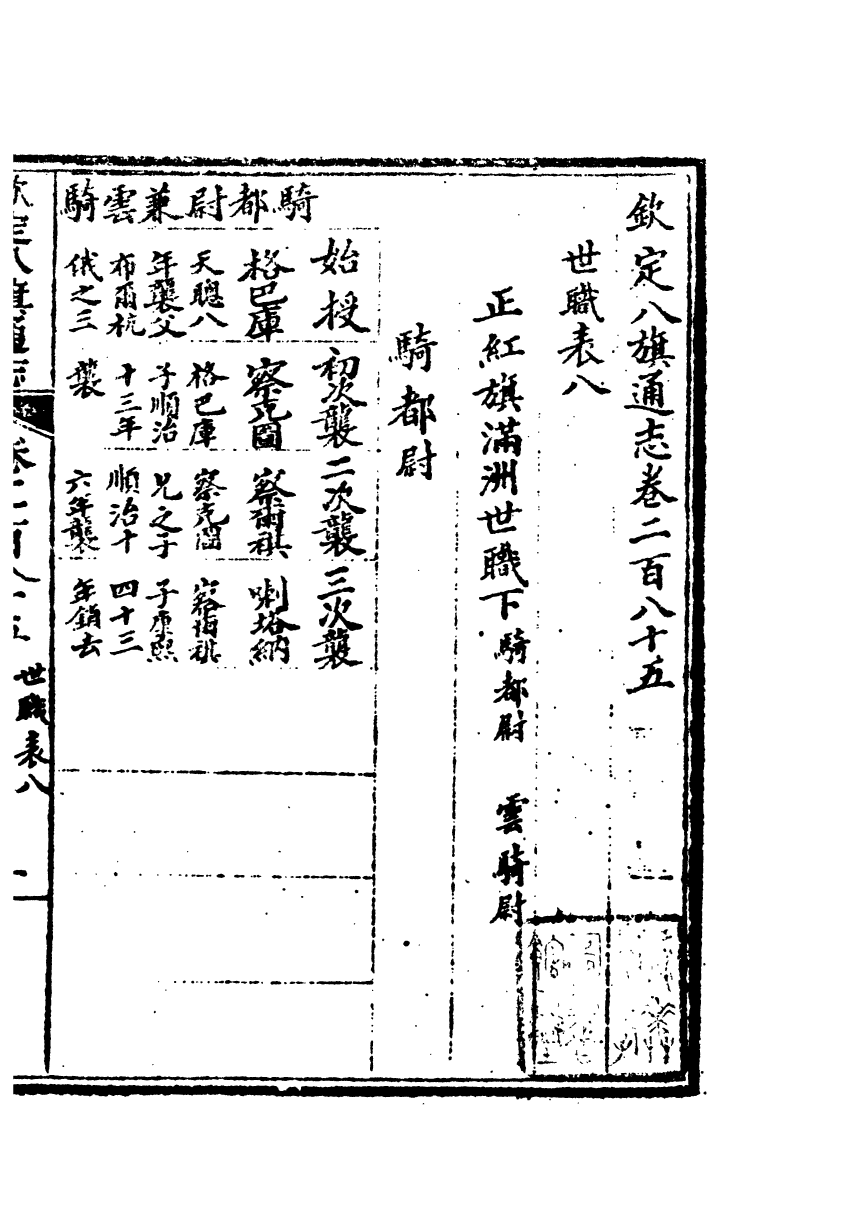 欽定八旗通志卷二百八十五
世職表八
正紅旗滿洲世職下 騎都尉 雲騎尉
騎都尉
始授 初次襲 二次襲 三次襲
騎都尉兼雲騎
格巴庫
天聰八
年襲父
布爾杭
俄之三
察克圖
格巴庫
子順治
十三年
襲
察爾祺
察克圖
兄之子
順治十
六年襲
喇塔納
察爾祺
子康熙
四十三
年銷去
欽定八旗通志 卷二百八十五 世職表八 一